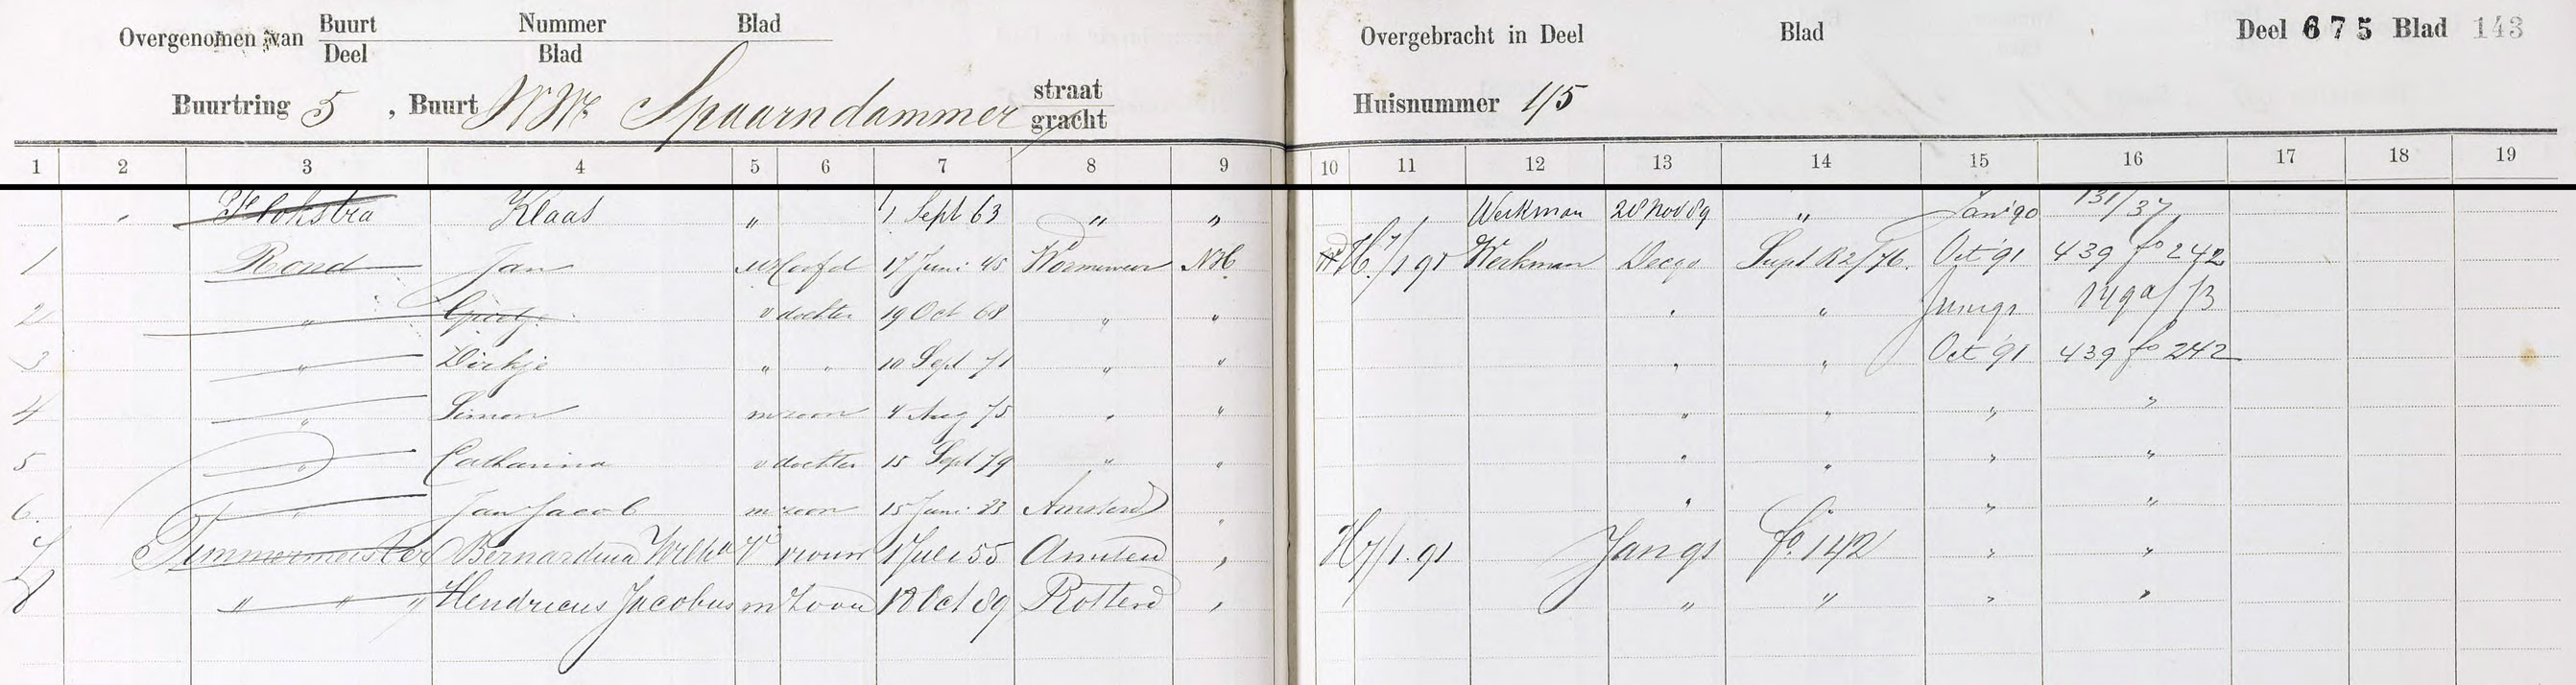 Overgenomen van Buurt Nummer Blad
Deel Blad
Overgebracht in Deel Blad Deel 675 Blad 143
Buurtring 5, Buurt Spaarndammer straat
gracht
Huisnummer 45
1 2 3 4 5 6 7 8 9 10 11 12 13 14 15 16 17 18 19
Klaas " Sept 63 " " Werkman 28 Nov 89 " Jan '90 131/37
1 Rond Jan m Hoofd 17 Juni 45 Wormerveer NH H 7/1 91 Werkman Dec 90 Oct '91 439 fo 242
2 " v dochter 19 Oct 68 " " " " Juni 91 149a/13
3 " Dirkje " " 10 Sept 71 " " " " Oct '91 439 fo 242
4 " Simon m zoon 4 Aug 75 " " " " " "
5 " Catharina v dochter 15 Sept 79 " " " " " "
6. " Jan Jacob m zoon 15 Juni 83 Amsterd " " " " "
7 Timmermeister Bernardina Wilha V vrouw 1 Juli 55 Amsterd " H 7/1.91 Jan 91 fo 142 " "
8 " " " Hendricus Jacobus m Zoon 12 Oct 89 Rotterd " " " " "